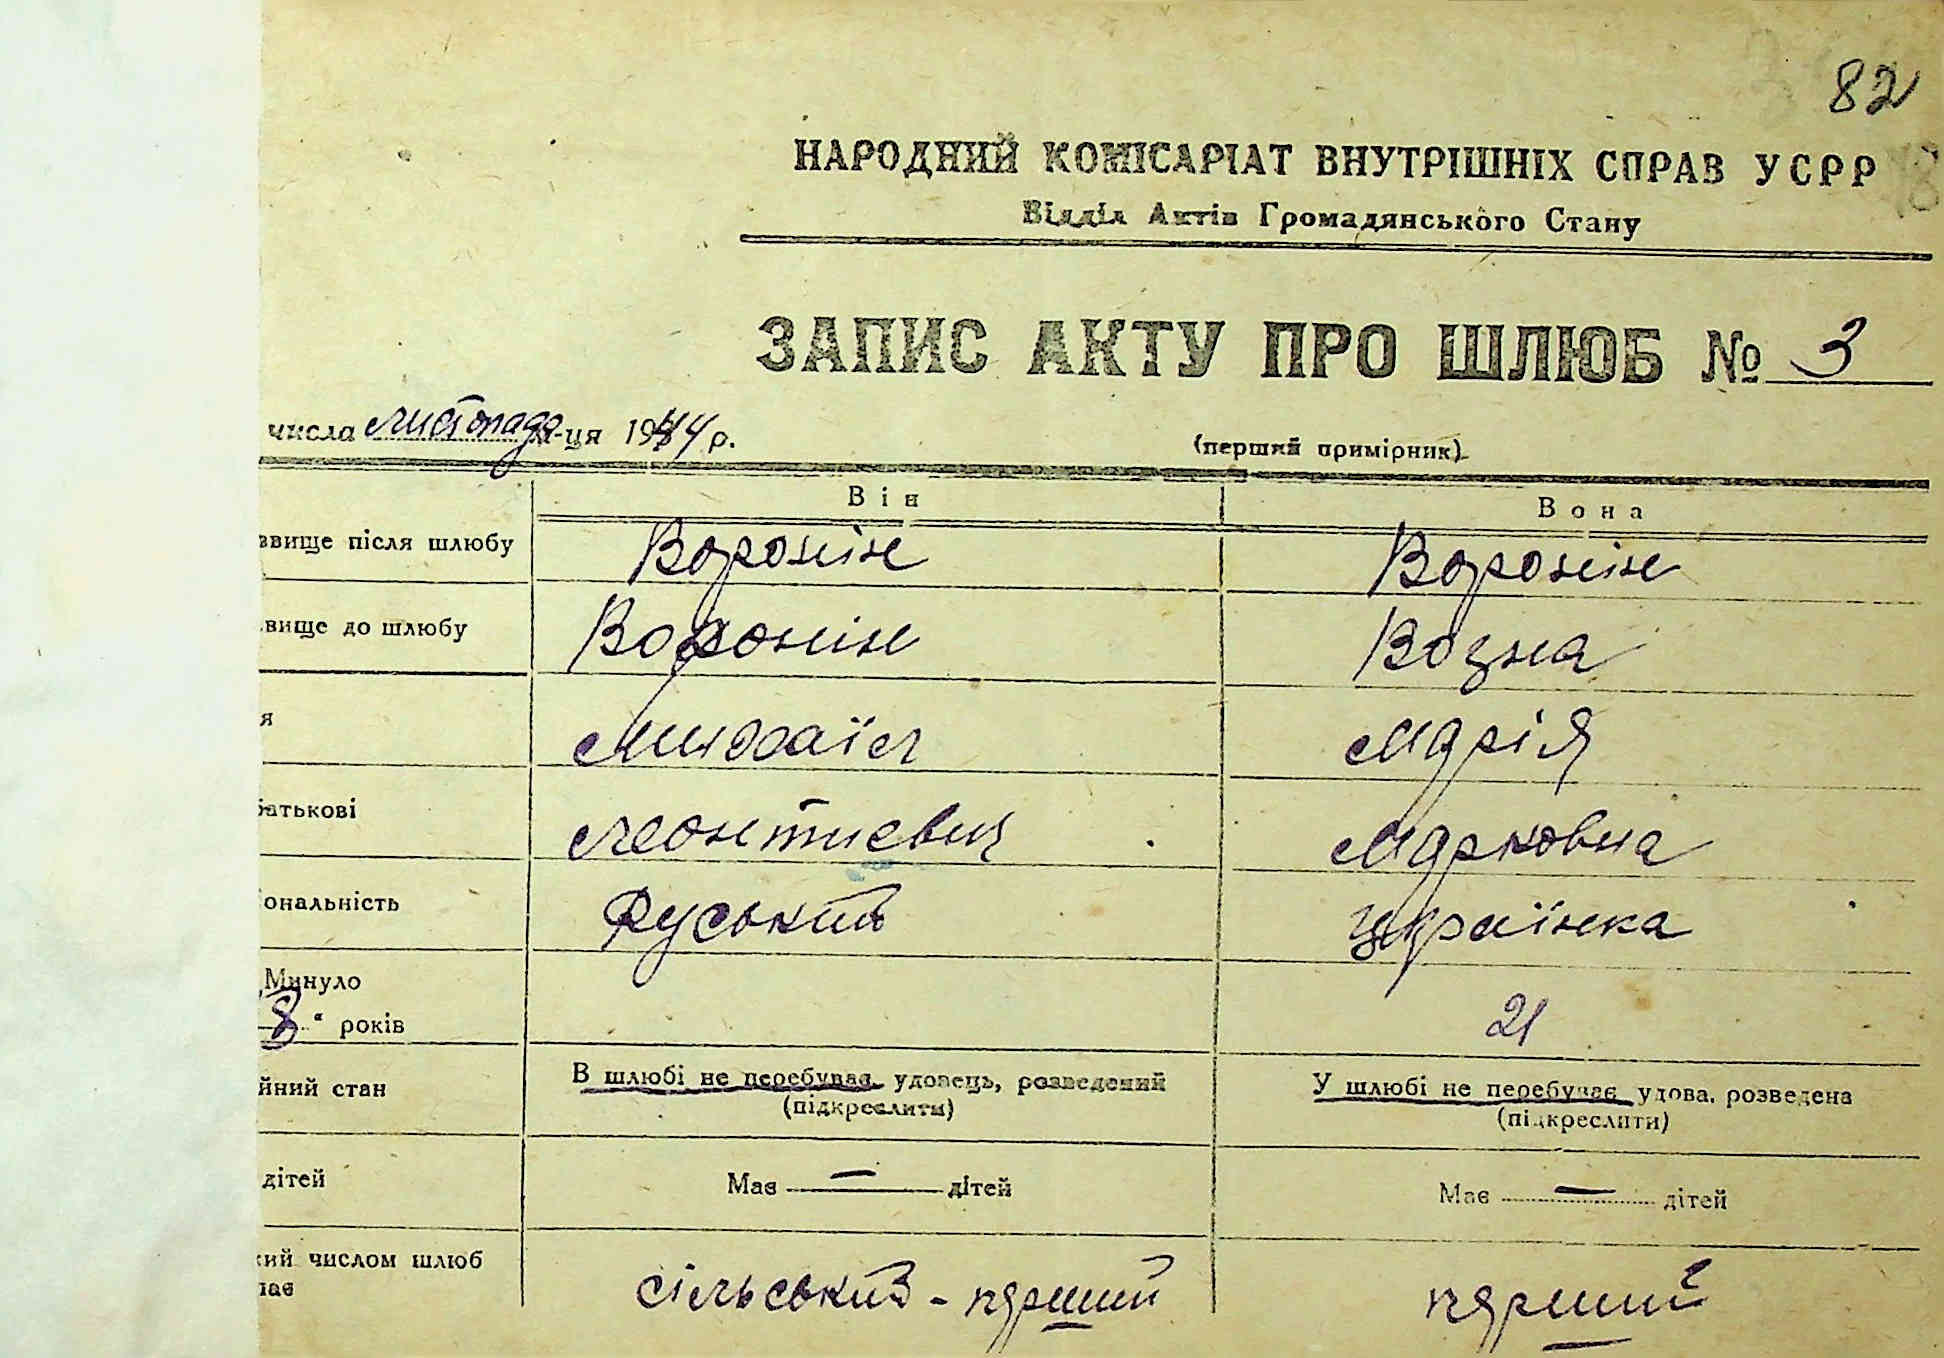 82
НАРОДНИЙ КОМІСАРІАТ ВНУТРІШНІХ СПРАВ УСРР
Відділ Актів Громадянського Стану
ЗАПИС АКТУ ПРО ШЛЮБ № 3
числа листопада м-ця 1944 р.
(перший примірник)
Він Вона
звище після шлюбу Воронін Воронін
звище до шлюбу Воронін Возна
я Михаїл Марія
батькові Леонтиевич Марковна
ональність Руський Українка
Минуло
8" років 21
йний стан В шлюбі не перебував, удовець, розведений У шлюбі не перебуває удова, розведена
(підкреслити) (підкреслити)
дітей Має — дітей Має — дітей
кий числом шлюб
сільський - перший перший